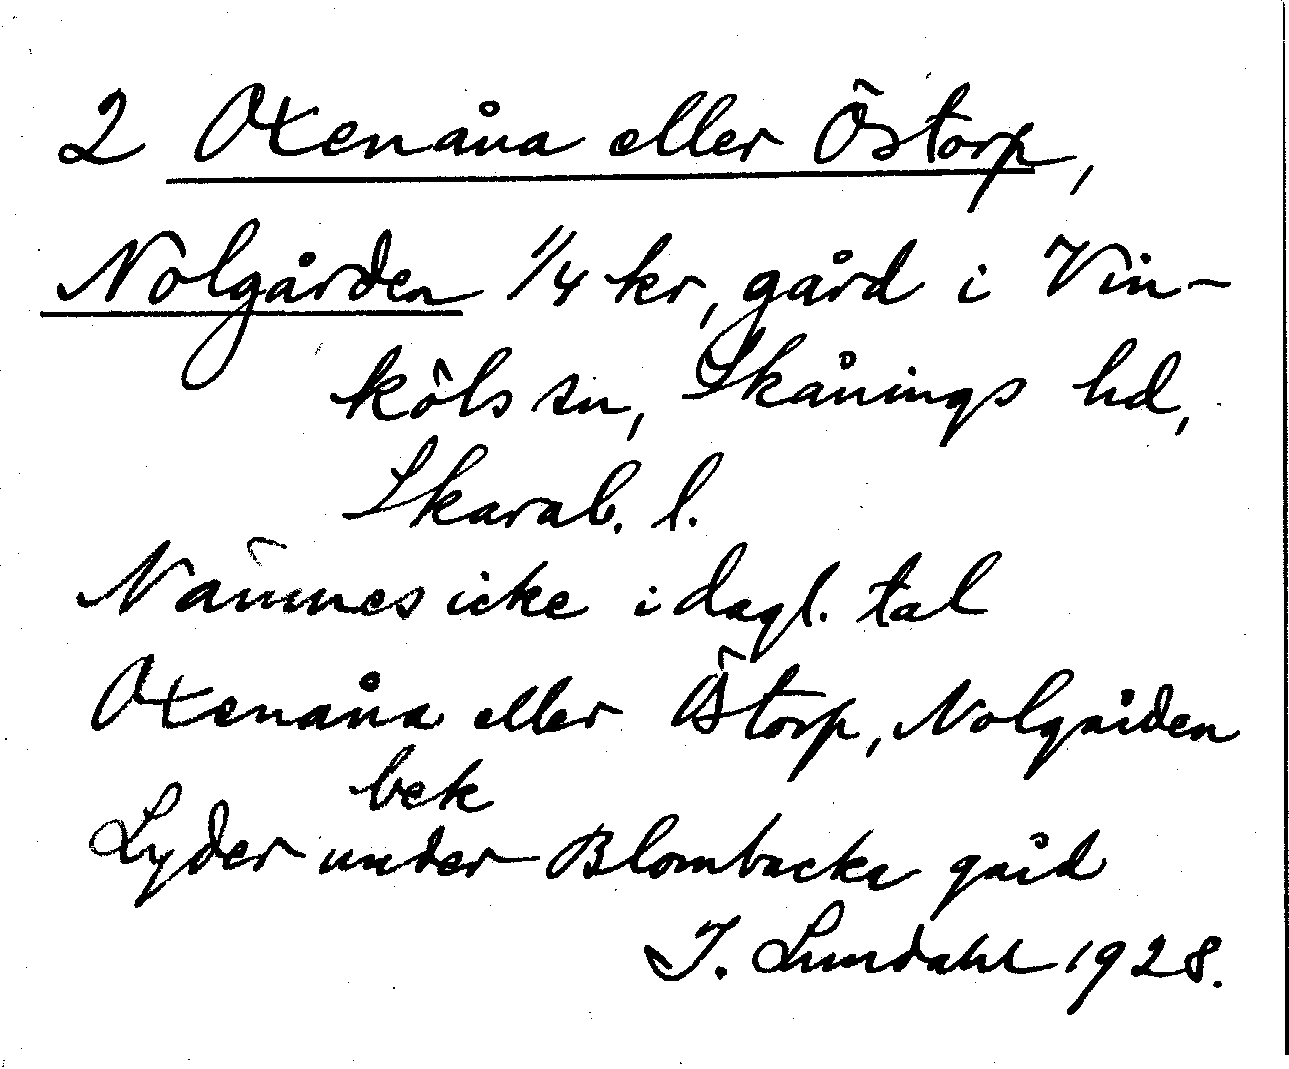 2 Oxenåna eller Östorp,
Nolgården 1/4 kr, gård i Vin-
köls sn, Skånings hd,
Skarab. l.
Nämnes icke i dagl. tal
Oxenåna eller Östorp, Nolgården
bek
Lyder under Blombacka gård
I. Lundahl 1928.